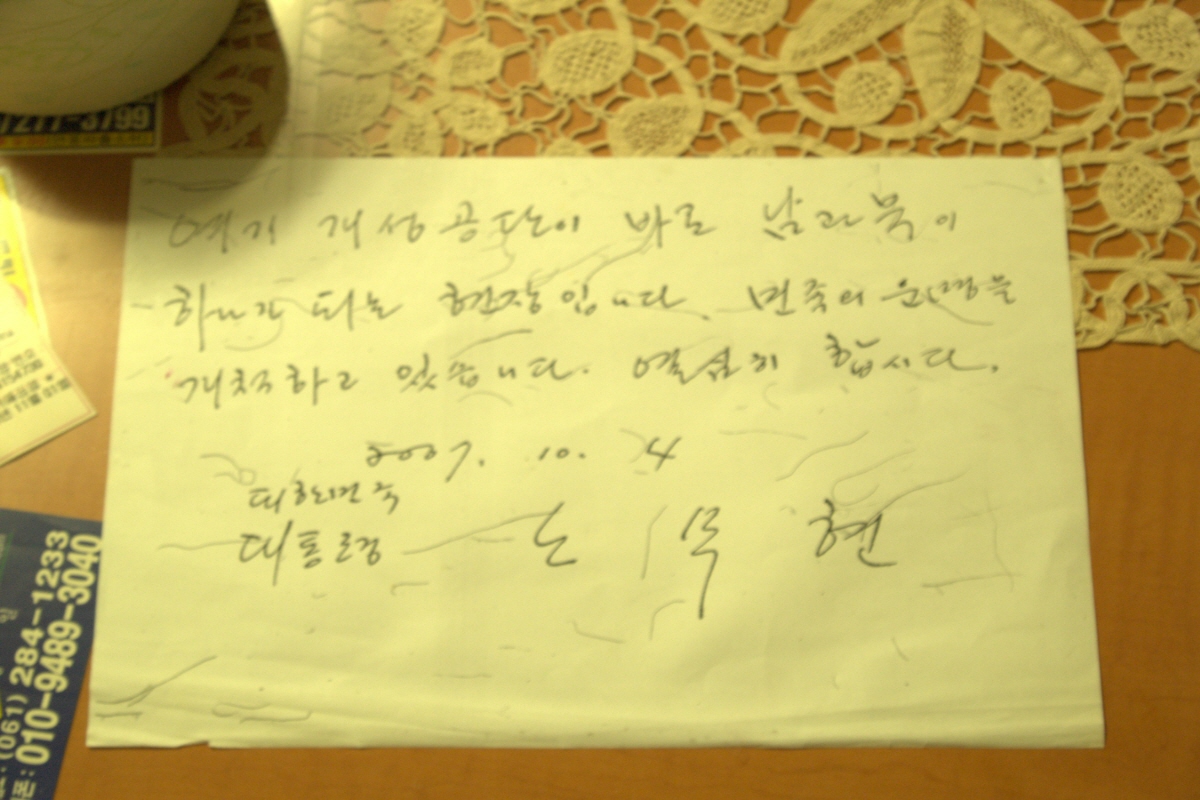 277-3799
여기 개성공단이 바로 남과 북이
하나가 되는 현장입니다. 민족의 운명을
개척하고 있습니다. 열심히 합시다.
2007. 10. 4
대한민국
대통령 노무현
(061) 284-1233
폰: 010-9489-3040